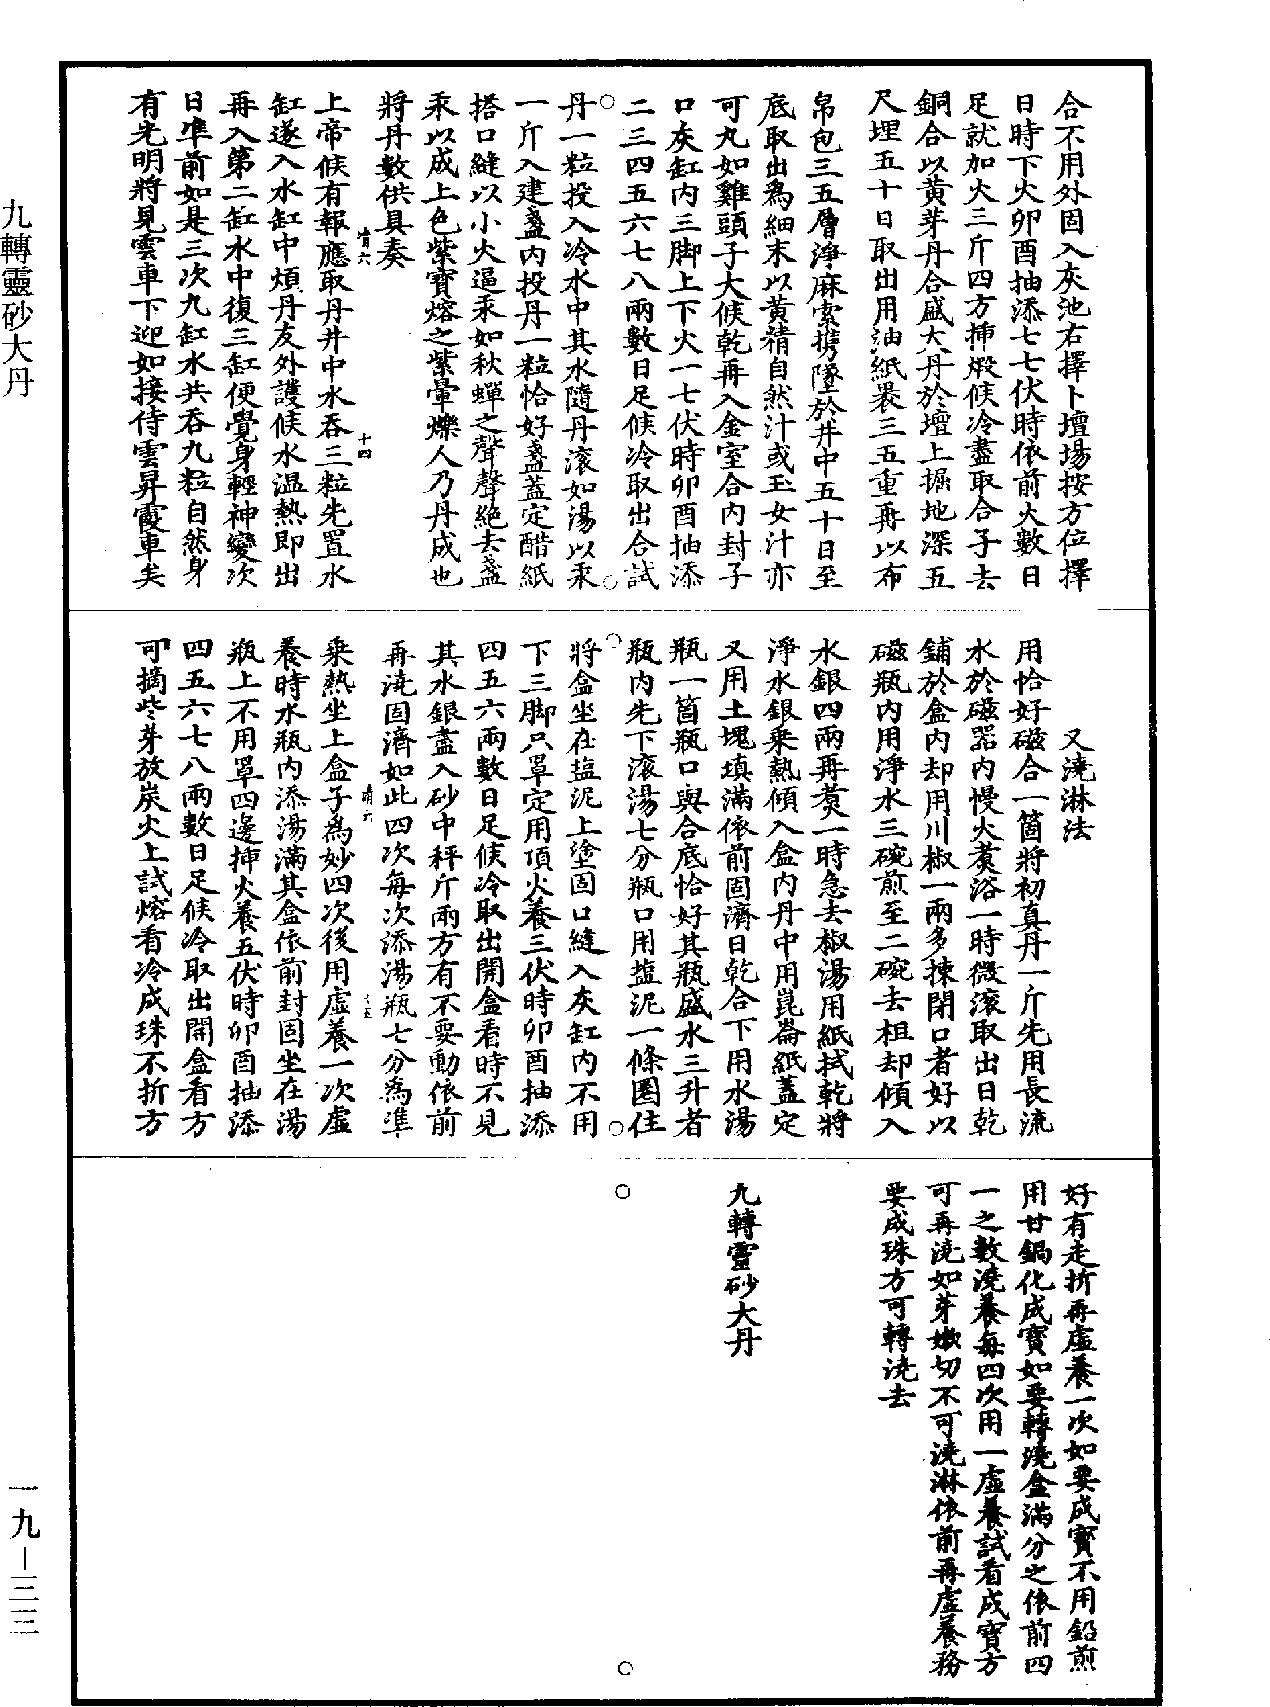 合不用外固入灰池右擇卜壇場按方位擇
日時下火卯酉抽添七七伏時依前火數日
足就加火三斤四方揷煅候冷盡取合子去
銅合以黃芽丹合盛大丹於壇上掘地深五
尺埋五十日取出用油紙裹三五重再以布
帛包三五層淨麻索攜墜於井中五十日至
底取出為細末以黃精自然汁或玉女汁亦
可丸如雞頭子大候乾再入金室合內封子
口灰缸內三脚上下火一七伏時卯酉抽添
二三四五六七八兩數日足候冷取出合試
丹一粒投入冷水中其水隨丹滾如湯以汞
一斤入建盞內投丹一粒恰好盞蓋定醋紙
搭口縫以小火逼汞如秋蟬之聲聲絕去盞
汞以成上色紫寶熔之紫暈爍人乃丹成也
將丹數供具奏
上帝候有報應取丹井中水吞三粒先置水
缸遂入水缸中煩丹友外護候水溫熱即出
再入第二缸水中復三缸便覺身輕神變次
日準前如是三次九缸水共吞九粒自然身
有光明將見雲車下迎如接侍雲昇霞車矣
又澆淋法
用恰好磁合一箇將初真丹一斤先用長流
水於磁器內慢火煮浴一時微滾取出日乾
鋪於盒內却用川椒一兩多揀閉口者好以
磁瓶內用淨水三碗煎至二碗去柤却傾入
水銀四兩再煑一時急去椒湯用紙拭乾將
淨水銀乘熱傾入盒內丹中用崑崙紙蓋定
又用土塊填滿依前固濟日乾合下用水湯
瓶一箇瓶口與合底恰好其瓶盛水三升者
瓶內先下滾湯七分瓶口用塩泥一條圈住
將盒坐在塩泥上塗固口縫入灰缸內不用
下三脚只罩定用頂火養三伏時卯酉抽添
四五六兩數日足候冷取出開盒看時不見
其水銀盡入砂中秤斤兩方有不要動依前
再澆固濟如此四次每次添湯瓶七分為準
乘熱坐上盒子為妙四次後用虛養一次虛
養時水瓶內添湯滿其盒依前封固坐在湯
瓶上不用罩四邊揷火養五伏時卯酉抽添
四五六七八兩數日足候冷取出開盒看方
可摘些芽放炭火上試熔看冷成珠不折方
好有走折再虛養一次如要成寶不用鉛煎
用甘鍋化成寶如要轉澆盒滿分之依前四
一之數澆養每四次用一虛養試看成寶方
可再澆如芽嫩切不可澆淋依前再虛養務
要成珠方可轉澆去
九轉靈砂大丹
九轉靈砂大丹
一九—三三